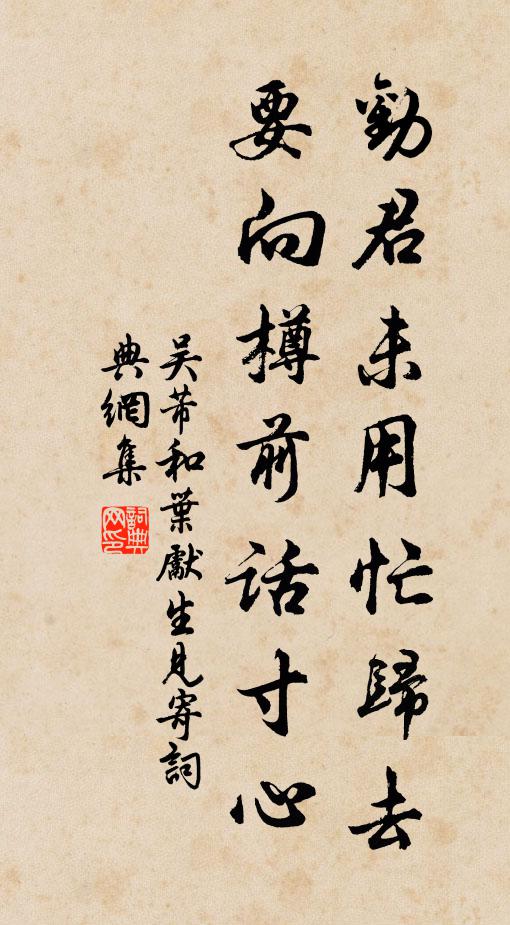 勸君未用忙歸去
要向樽前话寸心
吴芾和葉獻生見寄詞
典網集
詞典网印